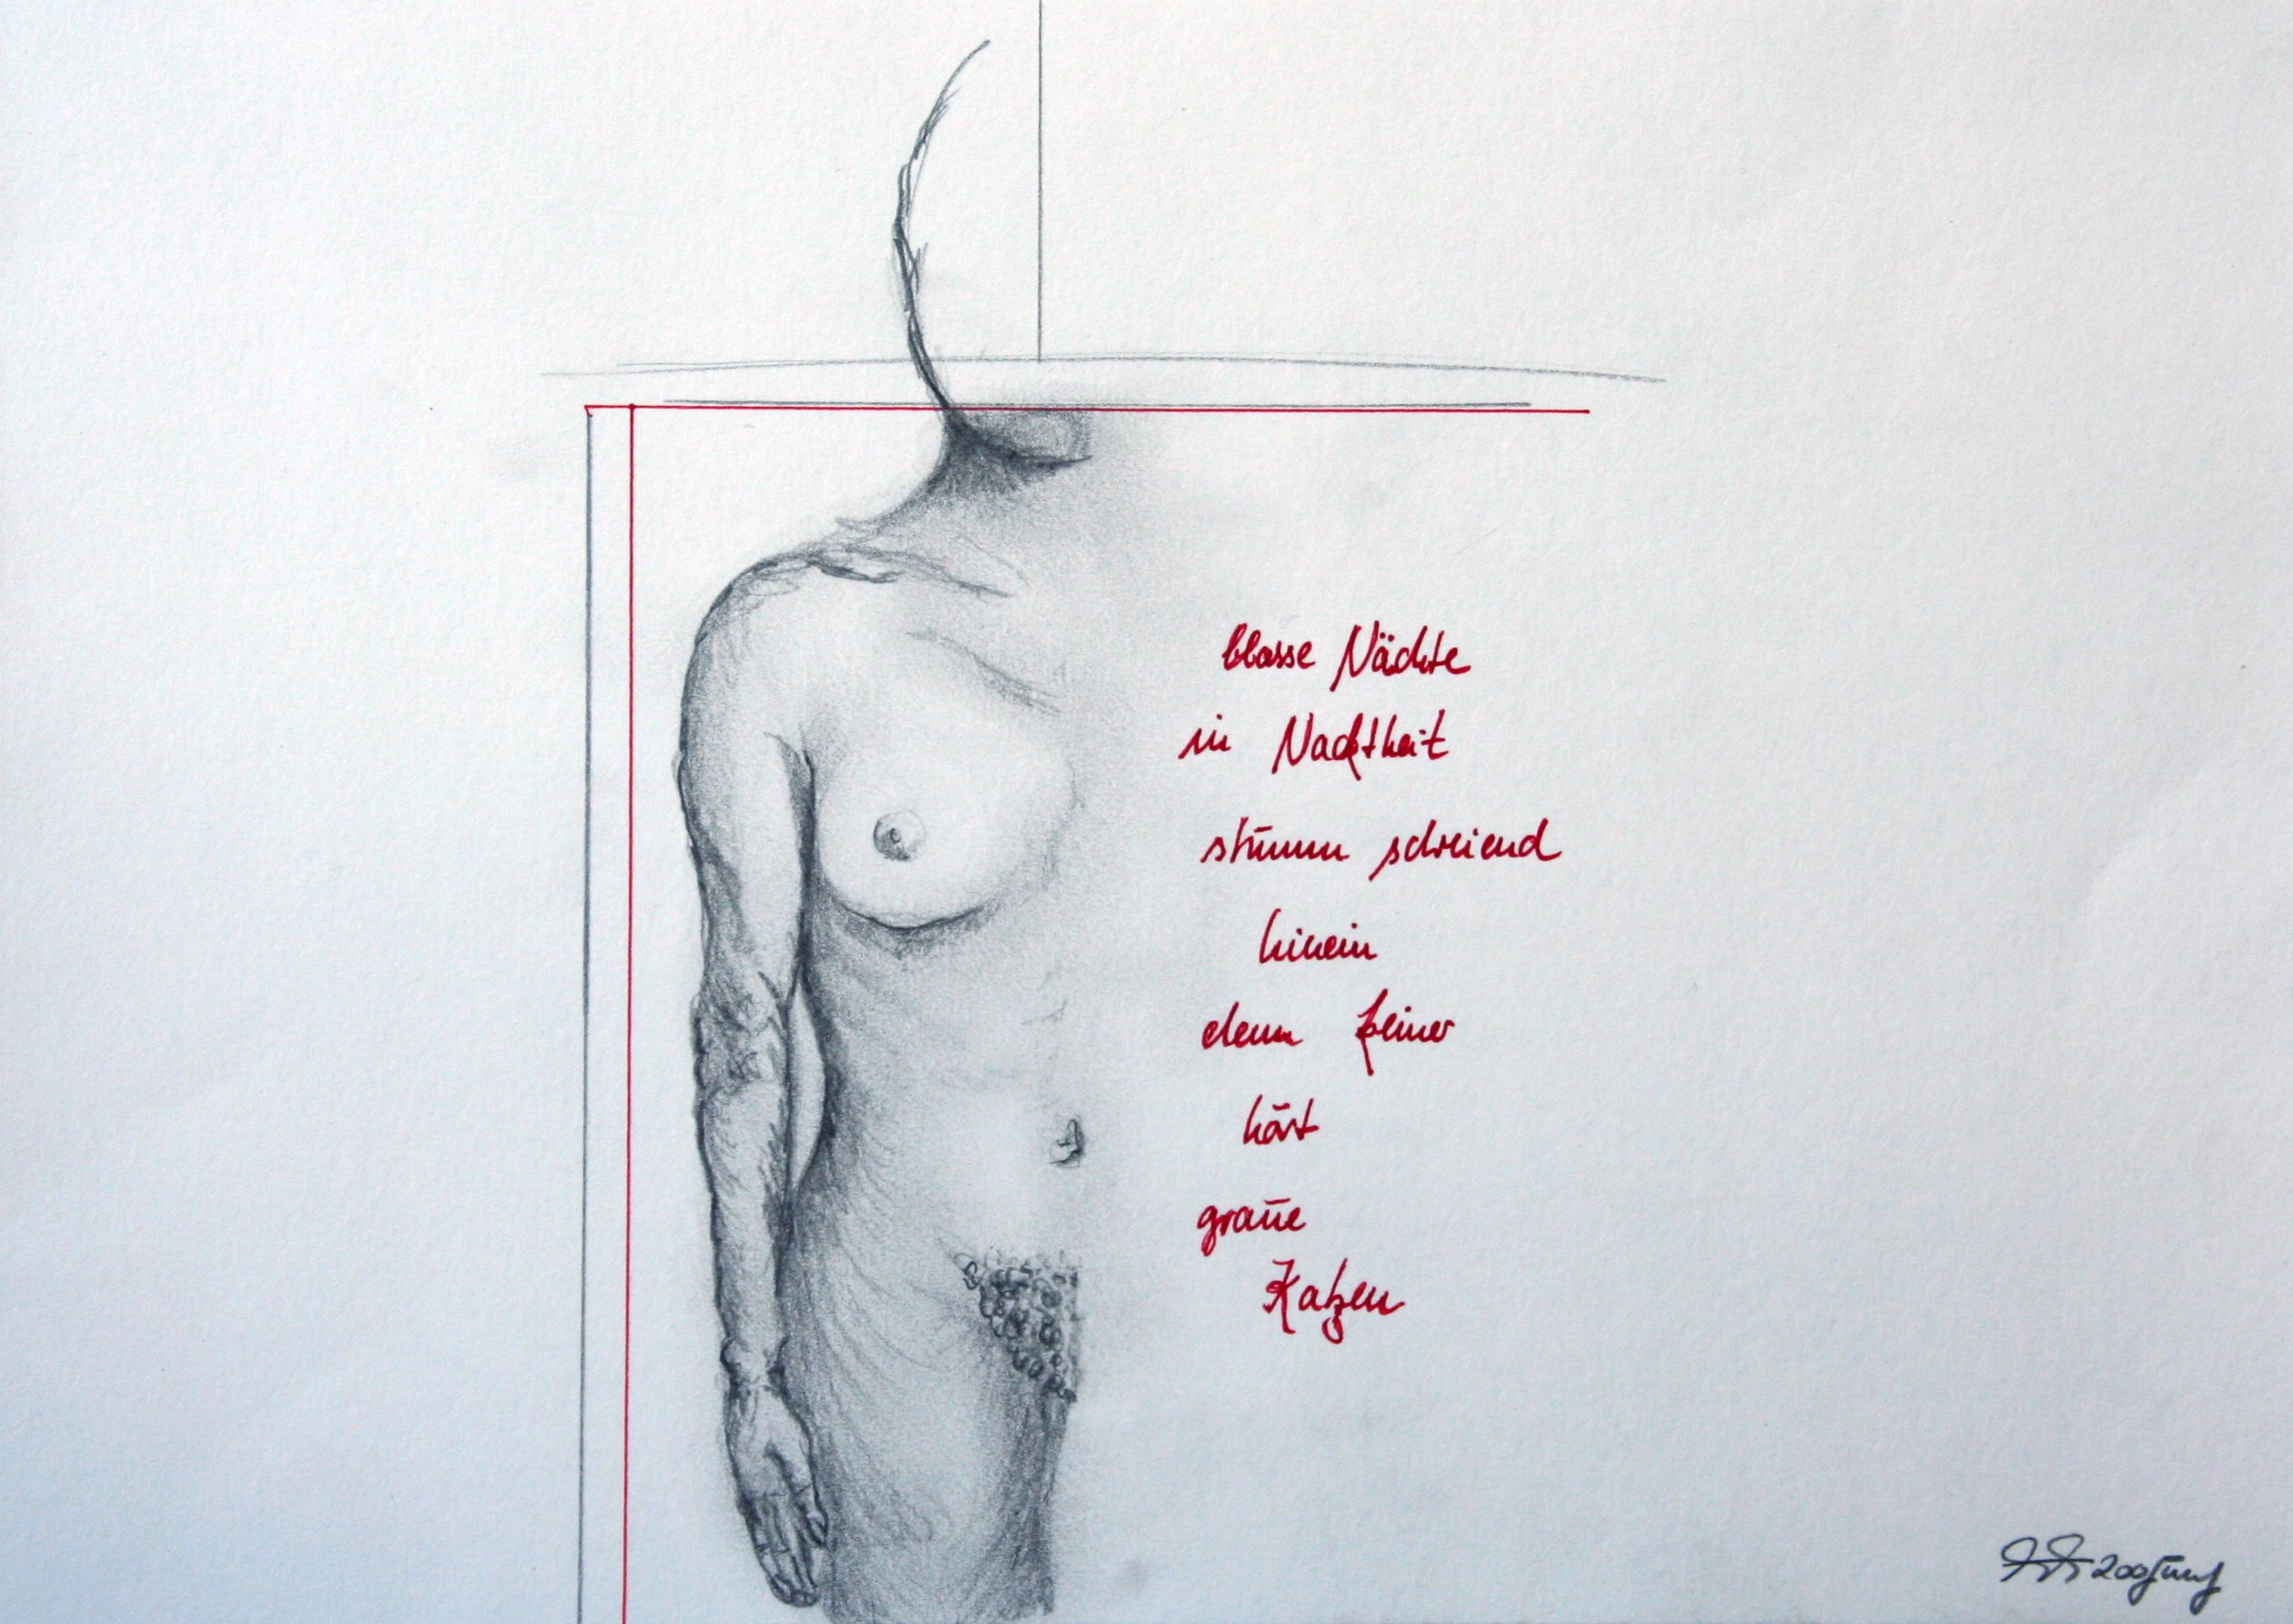 blasse Nächte
in Nacktheit
stumm schreiend
hinein
denn keiner
hört
graue
Katzen
200fünf